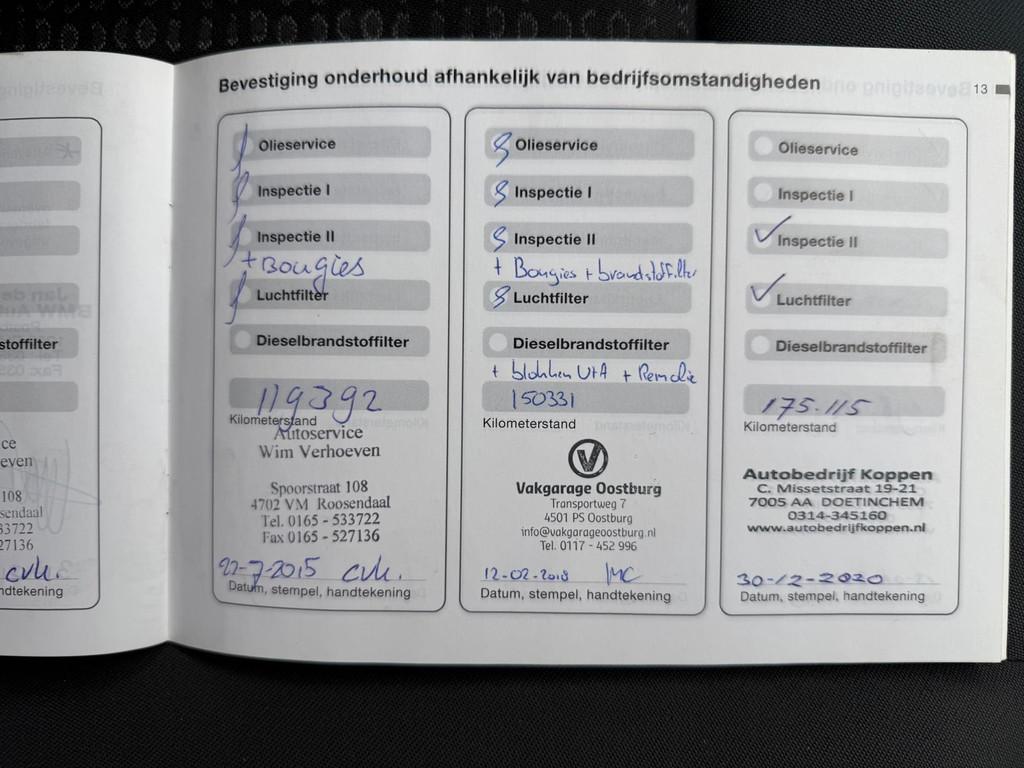 Bevestiging onderhoud afhankelijk van bedrijfsomstandigheden
13
stoffilter
ce
even
108
sendaal
33722
27136
cvh.
ndtekening
Olieservice
Inspectie I
Inspectie II
+ Bougies
Luchtfilter
Dieselbrandstoffilter
119392
Kilometerstand
Autoservice
Wim Verhoeven
Spoorstraat 108
4702 VM Roosendaal
Tel. 0165 - 533722
Fax 0165 - 527136
22-7-2015 cvh.
Datum, stempel, handtekening
Olieservice
Inspectie I
Inspectie II
+ Bougies + brandstoffilter
Luchtfilter
Dieselbrandstoffilter
+ blokken V+A + Remolie
150331
Kilometerstand
Vakgarage Oostburg
Transportweg 7
4501 PS Oostburg
info@vakgarageoostburg.nl
Tel. 0117 - 452 996
12-02-2018 MC
Datum, stempel, handtekening
Olieservice
Inspectie I
Inspectie II
Luchtfilter
Dieselbrandstoffilter
175.115
Kilometerstand
Autobedrijf Koppen
C. Missetstraat 19-21
7005 AA DOETINCHEM
0314-345160
www.autobedrijfkoppen.nl
30-12-2020
Datum, stempel, handtekening